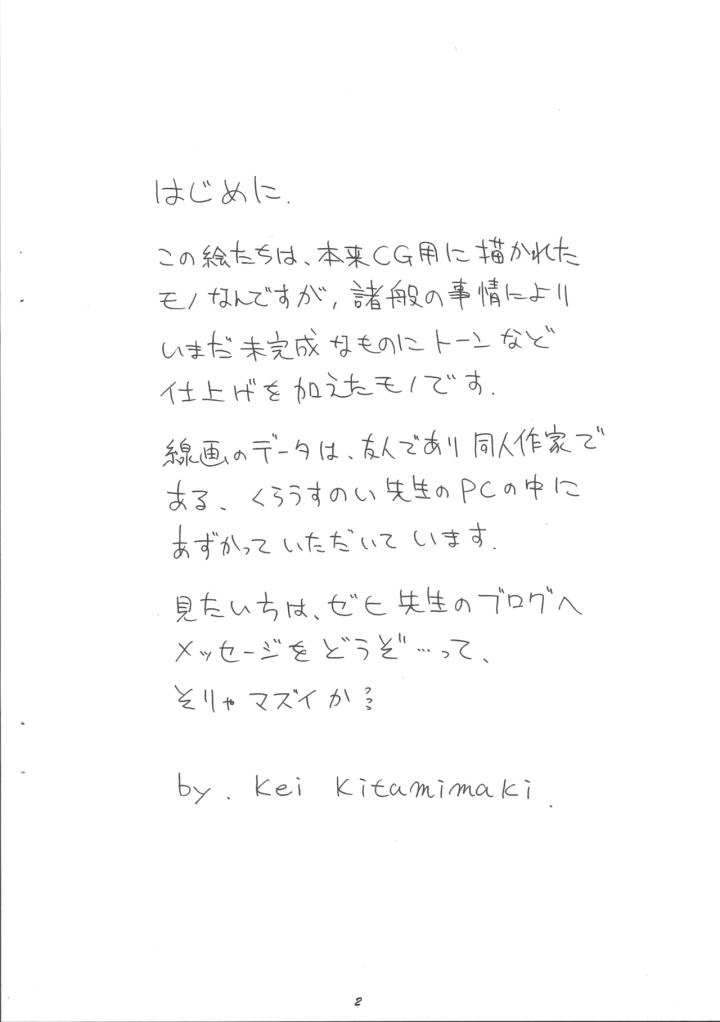 はじめに.
この絵たちは、本来CG用に描かれた
モノなんですが，諸般の事情により
いまだ未完成なものにトーンなど
仕上げを加えたモノです.
線画のデータは、友人であり同人作家で
ある、くらうすのい先生のPCの中に
あずかっていただいています.
見たいちは、ゼヒ先生のブログへ
メッセージをどうぞ…って、
そりゃマズイか??
by. Kei Kitamimaki.
2